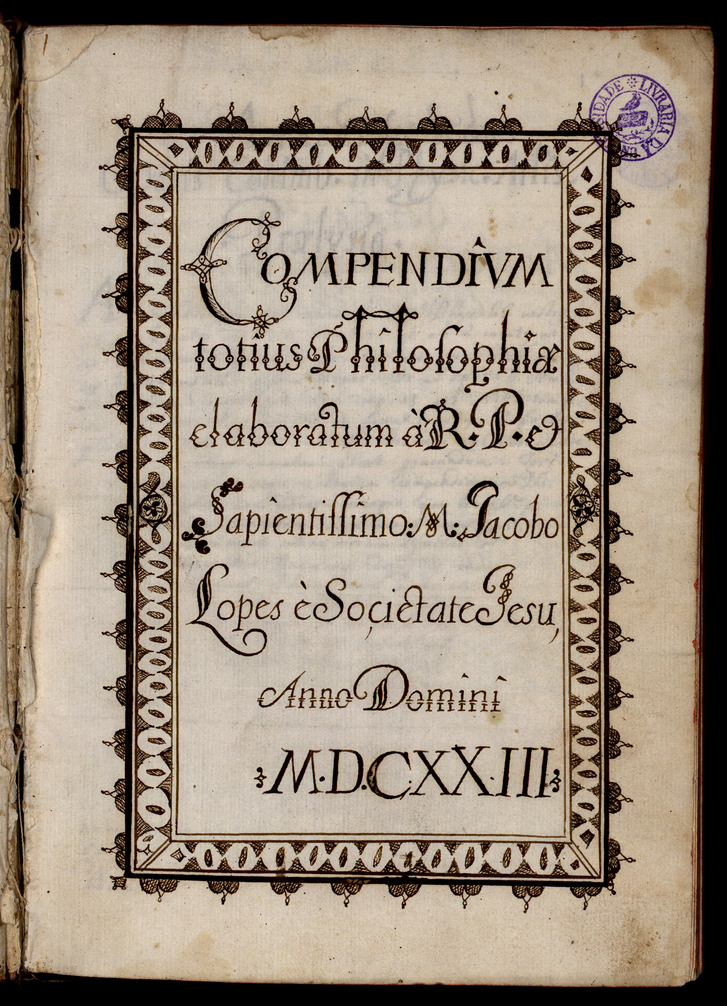 COMPENDIVM
totius Philosophiæ
elaboratum à R. P. &
Sapientissimo: M: Jacobo
Lopes è Soçietate Jesu,
Anno Domini
M.D.CXXIII
LIVRARIA DA